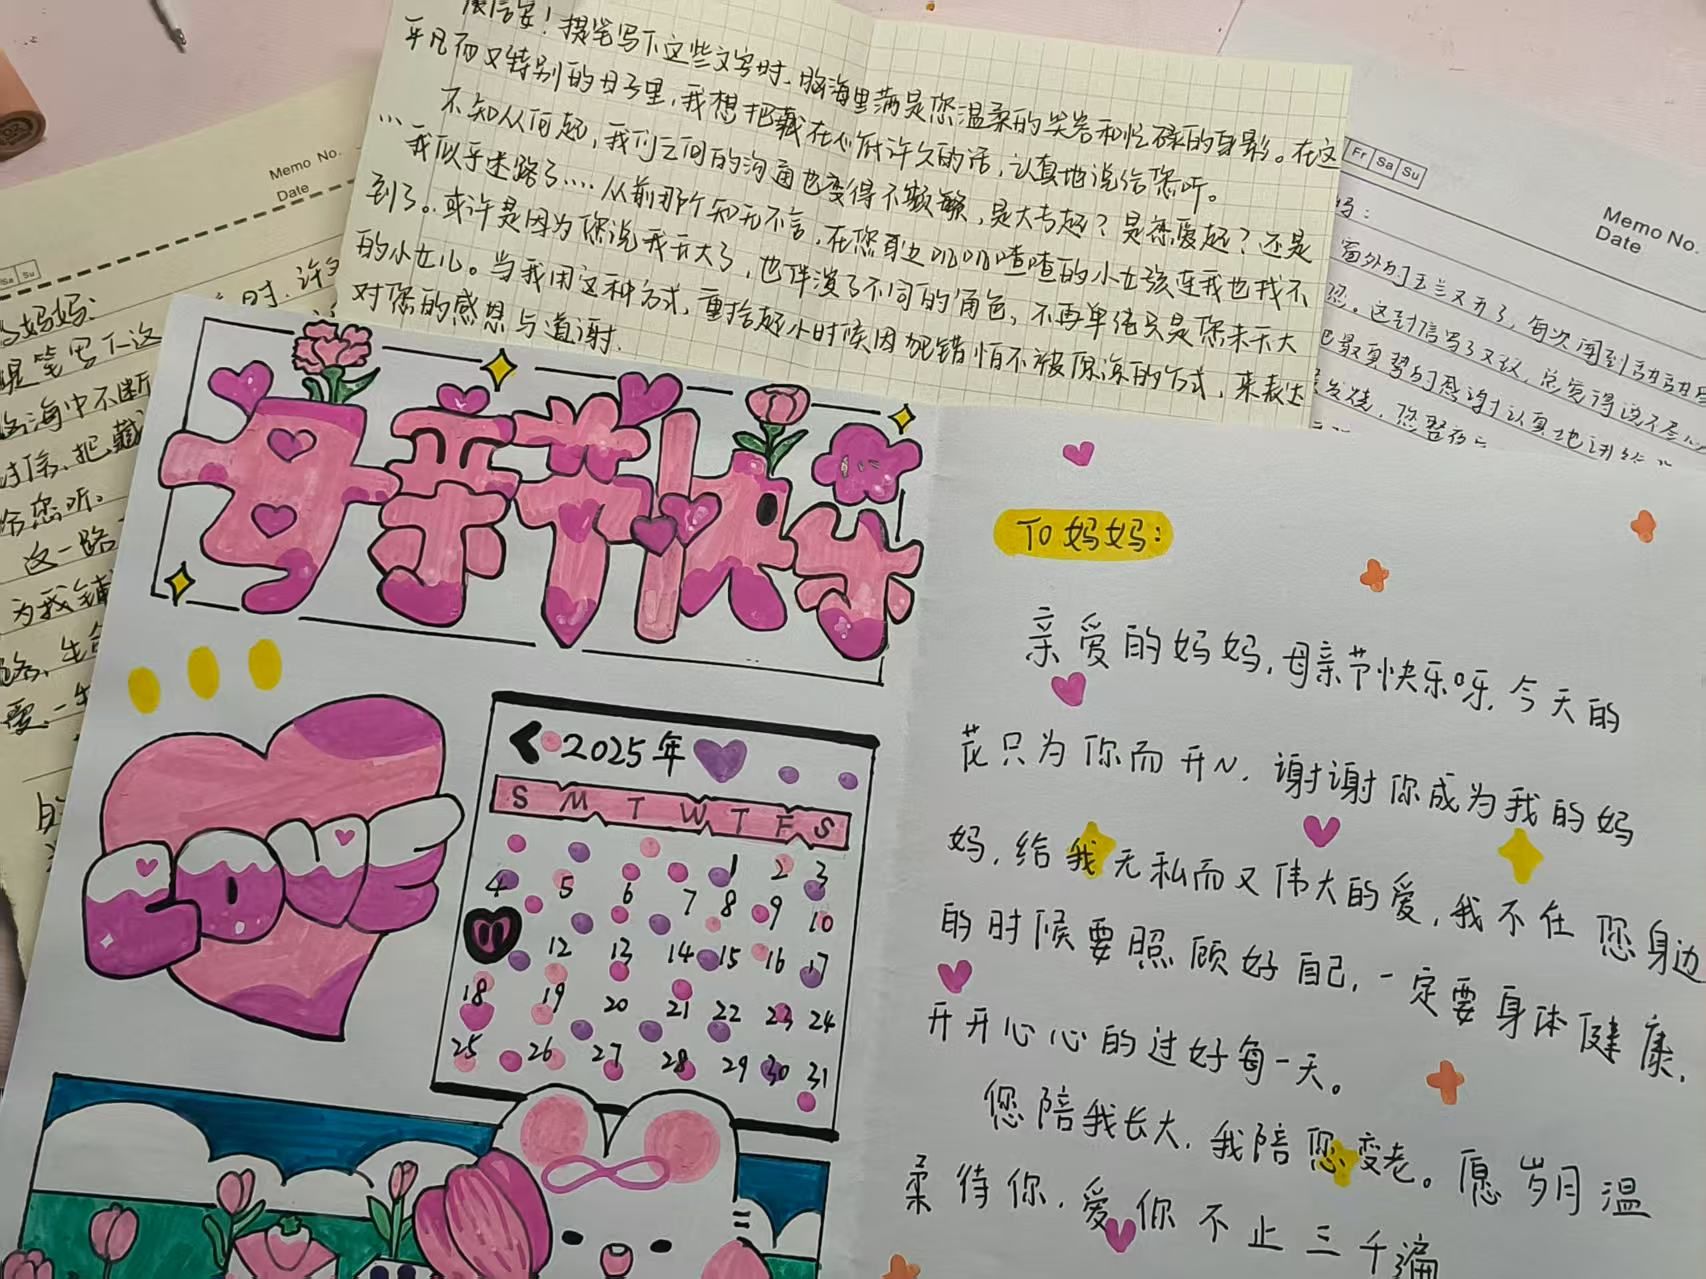 展信安！提笔写下这些文字时、脑海里满是您温柔的笑容和忙碌的身影。在这
平凡而又特别的日子里，我想把藏在心底许久的话，认真地说给您听。
不知从何起，我们之间的沟通也变得不频繁，是大专起？是恋爱起？还是
…我似乎迷路了….从前那个知无不言，在您耳边叽叽喳喳的小女孩连我也找不
到了。或许是因为您说我长大了，也伴演了不同的角色，不再单单只是您未长大
的小女儿。当我用这种方式，重拾起小时候因犯错怕不被原谅的方式，来表达
对您的感想与道谢.
Memo No.
Date
Sa Su
妈妈：
提笔写下这
时、许
脑海中不断
把藏
给您听。
这一路
为我铺
路、生
爱、一生
Fr Sa Su
Memo No.
Date
窗外的玉兰又开了，每次闻到
这封信写了又改，总觉得说不尽
最真挚的感谢认真地讲给
发烧，您整夜
母亲节快乐
LOVE
2025年
S M T W T F S
1 2 3
4 5 6 7 8 9 10
12 13 14 15 16 17
18 19 20 21 22 23 24
25 26 27 28 29 30 31
TO 妈妈：
亲爱的妈妈，母亲节快乐呀，今天的
花只为你而开~，谢谢你成为我的妈
妈，给我无私而又伟大的爱，我不在您身边
的时候要照顾好自己，一定要身体健康，
开开心心的过好每一天。
您陪我长大，我陪您变老。愿岁月温
柔待你，爱你不止三千遍